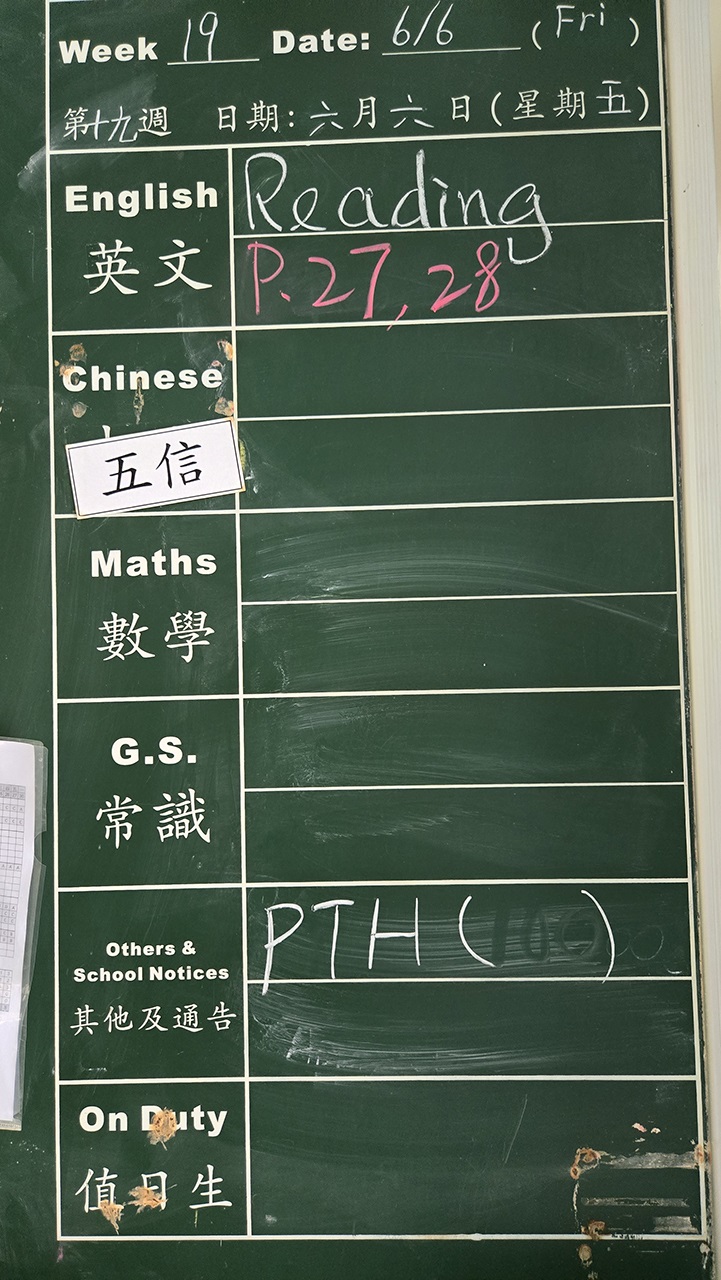 Week 19 Date: 6/6 (Fri)
第十九週 日期:六月六日(星期五)
English Reading
英文 P.27, 28
Chinese
五信
Maths
數學
G.S.
常識
Others &
School Notices
PTH ( )
其他及通告
On Duty
值日生